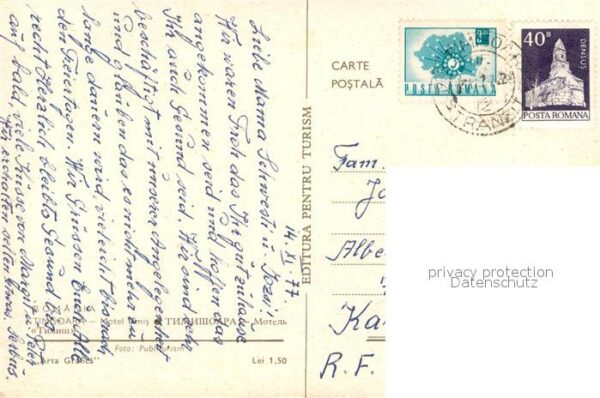 14. XI. 77
Liebe Mama Schwester u.
Wir waren Froh das Ihr gut zuhause
angekommen seid und hoffen das
Ihr auch Gesund seid. Wir sind sehr
beschäftigt mit unserer Angelegenheit
und glauben das es nicht mehr zu
lange dauern wird, vieleicht bis nach
den Feiertagen. Wir Grüssen Euch Alle
recht Herzlich bleibts Gesund und
auf bald, viele Grüsse von Margit u. Peter
Wir erhalten selten Servus.
ROMÂNIA
TIMIȘOARA — Motel Timiș ТИМИШОАРА — Мотель
«Тимиш»
Foto: Publiturism
"Arta Grafică" Lei 1,50
EDITURA PENTRU TURISM
CARTE
POȘTALĂ
POSTA ROMANA
40 B
DENSUS
POSTA ROMANA
TRANZIT
Fam.
Albe
Ka
R. F.
privacy protection
Datenschutz